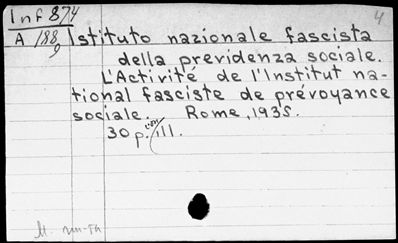 Inf 874
4
A 188
9
Istituto nazionale fascista
della previdenza sociale.
L'Activité de l'Institut na-
tional fasciste de prévoyance
sociale. Rome, 1935.
30 p. ill.